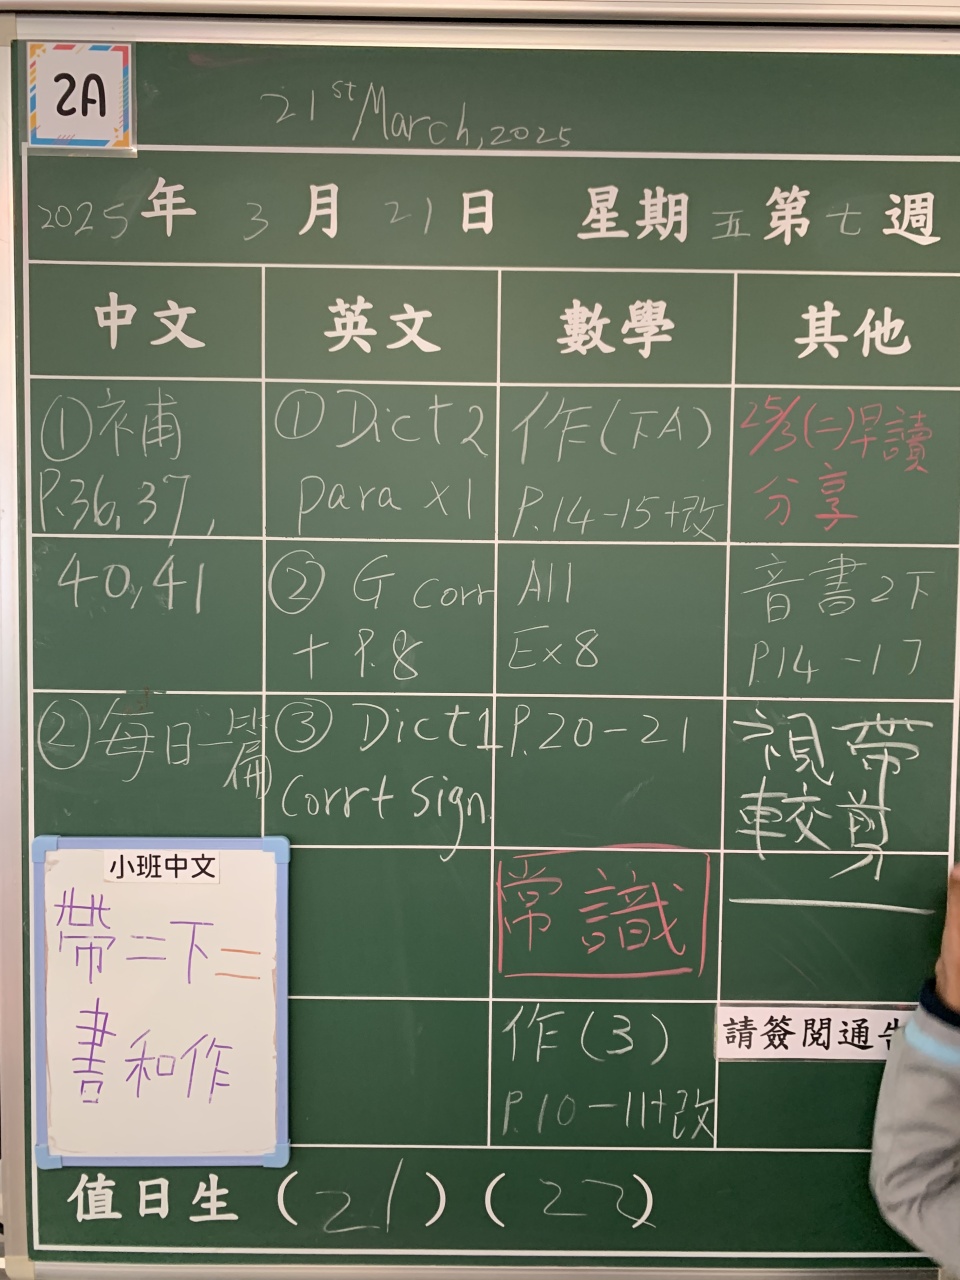 2A
21st March, 2025
2025年 3月 21日 星期五第七週
中文
英文
數學
其他
①補
P.36,37,
40,41
②每日一篇
①Dict 2
para x1
② G corr
+ P.8
③ Dict 1
Corr + Sign
作(下A)
P.14-15+改
All
Ex 8
P.20-21
常識
作(3)
P.10-11+改
25/3(二)早讀
分享
音書2下
P.14-17
視帶
較剪
請簽閱通告
小班中文
帶二下二
書和作
值日生 (21)(22)